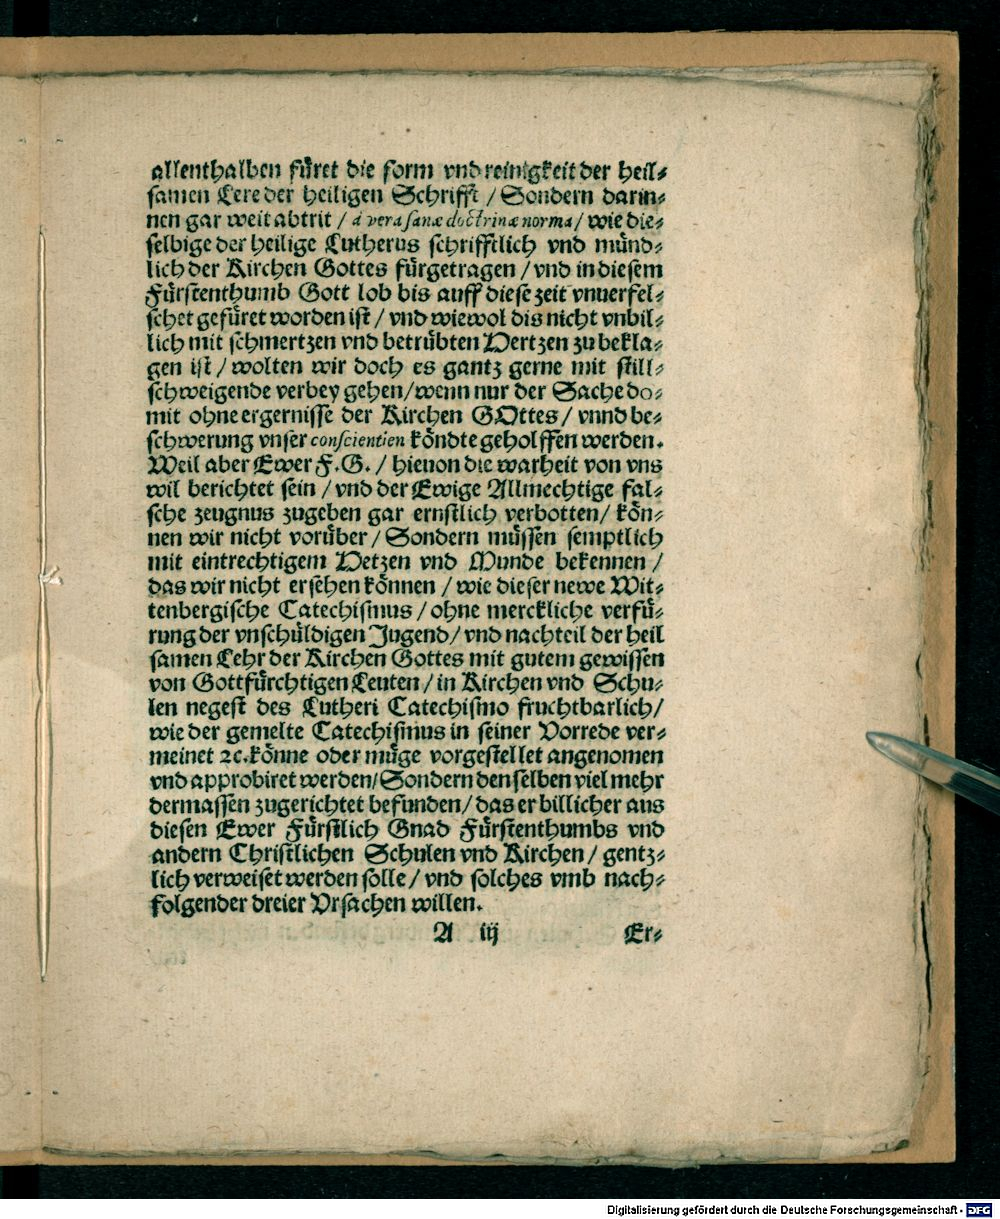 allenthalben füret die form vnd reinigkeit der heil⸗
samen Lere der heiligen Schrifft / Sondern darin⸗
nen gar weit abtrit / à vera sanæ doctrinæ norma / wie die⸗
selbige der heilige Lutherus schrifftlich vnd münd⸗
lich der Kirchen Gottes fürgetragen / vnd in diesem
Fürstenthumb Gott lob bis auff diese zeit vnuerfel⸗
schet gefüret worden ist / vnd wiewol dis nicht vnbil⸗
lich mit schmertzen vnd betrübten Hertzen zu bekla⸗
gen ist / wolten wir doch es gantz gerne mit still⸗
schweigende verbey gehen / wenn nur der Sache do⸗
mit ohne ergernisse der Kirchen GOttes / vnnd be⸗
schwerung vnser conscientien köndte geholffen werden.
Weil aber Ewer F.G. / hieuon die warheit von vns
wil berichtet sein / vnd der Ewige Allmechtige fal⸗
sche zeugnus zugeben gar ernstlich verbotten / kön⸗
nen wir nicht vorüber / Sondern müssen semptlich
mit eintrechtigem Hetzen vnd Munde bekennen /
das wir nicht ersehen können / wie dieser newe Wit⸗
tenbergische Catechismus / ohne merckliche verfü⸗
rung der vnschüldigen Jugend / vnd nachteil der heil
samen Lehr der Kirchen Gottes mit gutem gewissen
von Gottfürchtigen Leuten / in Kirchen vnd Schu⸗
len negest des Lutheri Catechismo fruchtbarlich /
wie der gemelte Catechismus in seiner Vorrede ver⸗
meinet ꝛc. könne oder müge vorgestellet angenomen
vnd approbiret werden / Sondern denselben viel mehr
dermassen zugerichtet befunden / das er billicher aus
diesen Ewer Fürstlich Gnad Fürstenthumbs vnd
andern Christlichen Schulen vnd Kirchen / gentz⸗
lich verweiset werden solle / vnd solches vmb nach⸗
folgender dreier Vrsachen willen.
A iij Er⸗
Digitalisierung gefördert durch die Deutsche Forschungsgemeinschaft - DFG